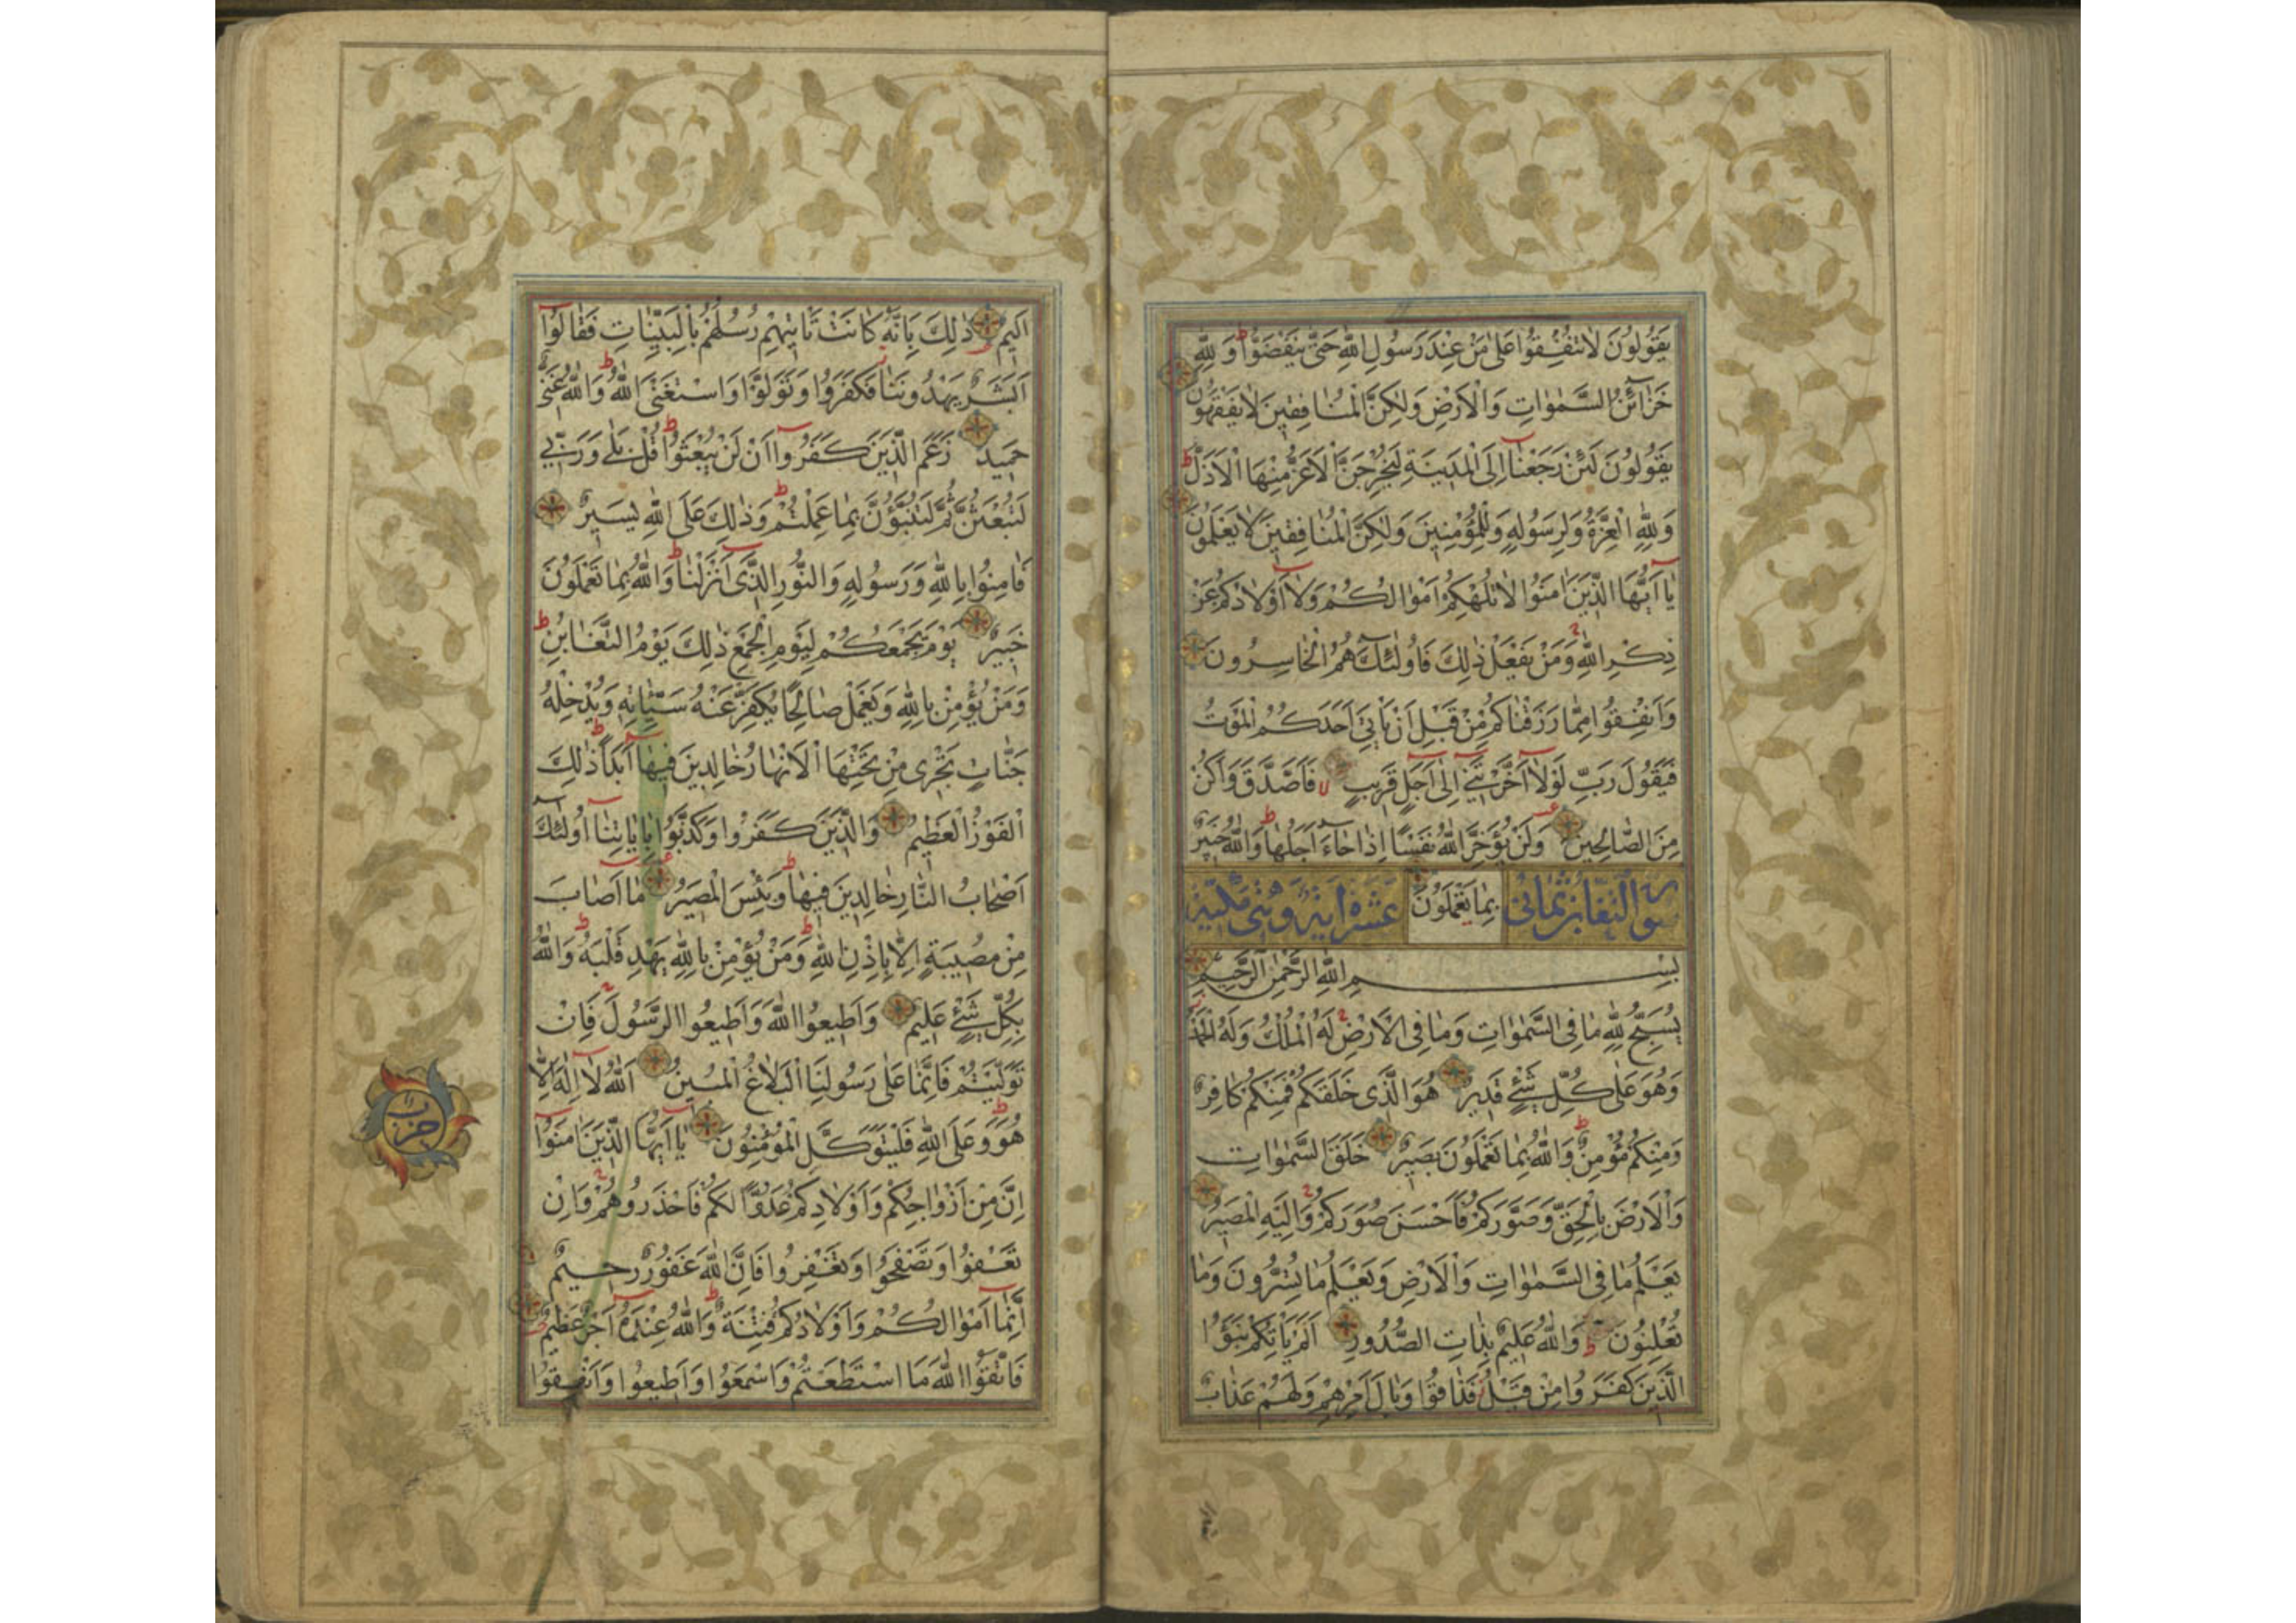 يَقُولُونَ لَا تُنْفِقُوا عَلٰى مَنْ عِنْدَ رَسُولِ اللّٰهِ حَتّٰى يَنْفَضُّوا ط وَلِلّٰهِ
خَزَآئِنُ السَّمٰوَاتِ وَالْاَرْضِ وَلٰكِنَّ الْمُنَافِقِينَ لَا يَفْقَهُونَ
يَقُولُونَ لَئِنْ رَجَعْنَآ اِلَى الْمَدِينَةِ لَيُخْرِجَنَّ الْاَعَزُّ مِنْهَا الْاَذَلَّ ط
وَلِلّٰهِ الْعِزَّةُ وَلِرَسُولِهِ وَلِلْمُؤْمِنِينَ وَلٰكِنَّ الْمُنَافِقِينَ لَا يَعْلَمُونَ
يَآ اَيُّهَا الَّذِينَ اٰمَنُوا لَا تُلْهِكُمْ اَمْوَالُكُمْ وَلَآ اَوْلَادُكُمْ عَنْ
ذِكْرِ اللّٰهِ وَمَنْ يَفْعَلْ ذٰلِكَ فَاُولٰٓئِكَ هُمُ الْخَاسِرُونَ
وَاَنْفِقُوا مِمَّا رَزَقْنَاكُمْ مِنْ قَبْلِ اَنْ يَاْتِيَ اَحَدَكُمُ الْمَوْتُ
فَيَقُولَ رَبِّ لَوْلَآ اَخَّرْتَنِيٓ اِلٰٓى اَجَلٍ قَرِيبٍ لا فَاَصَّدَّقَ وَاَكُنْ
مِنَ الصَّالِحِينَ وَلَنْ يُؤَخِّرَ اللّٰهُ نَفْسًا اِذَا جَآءَ اَجَلُهَا ط وَاللّٰهُ خَبِيرٌ
سورة التغابن ثمانى بِمَا تَعْمَلُونَ عشرة اية وهى مكية
بِسْمِ اللّٰهِ الرَّحْمٰنِ الرَّحِيمِ
يُسَبِّحُ لِلّٰهِ مَا فِى السَّمٰوَاتِ وَمَا فِى الْاَرْضِ لَهُ الْمُلْكُ وَلَهُ الْحَمْدُ
وَهُوَ عَلٰى كُلِّ شَيْءٍ قَدِيرٌ هُوَ الَّذِى خَلَقَكُمْ فَمِنْكُمْ كَافِرٌ
وَمِنْكُمْ مُؤْمِنٌ ط وَاللّٰهُ بِمَا تَعْمَلُونَ بَصِيرٌ خَلَقَ السَّمٰوَاتِ
وَالْاَرْضَ بِالْحَقِّ وَصَوَّرَكُمْ فَاَحْسَنَ صُوَرَكُمْ وَاِلَيْهِ الْمَصِيرُ
يَعْلَمُ مَا فِى السَّمٰوَاتِ وَالْاَرْضِ وَيَعْلَمُ مَا تُسِرُّونَ وَمَا
تُعْلِنُونَ ط وَاللّٰهُ عَلِيمٌ بِذَاتِ الصُّدُورِ اَلَمْ يَاْتِكُمْ نَبَؤُا
الَّذِينَ كَفَرُوا مِنْ قَبْلُ فَذَاقُوا وَبَالَ اَمْرِهِمْ وَلَهُمْ عَذَابٌ
اَلِيمٌ ذٰلِكَ بِاَنَّهُ كَانَتْ تَاْتِيهِمْ رُسُلُهُمْ بِالْبَيِّنَاتِ فَقَالُوٓا
اَبَشَرٌ يَهْدُونَنَا فَكَفَرُوا وَتَوَلَّوْا وَاسْتَغْنَى اللّٰهُ ط وَاللّٰهُ غَنِىٌّ
حَمِيدٌ زَعَمَ الَّذِينَ كَفَرُوٓا اَنْ لَنْ يُبْعَثُوا ط قُلْ بَلٰى وَرَبِّي
لَتُبْعَثُنَّ ثُمَّ لَتُنَبَّؤُنَّ بِمَا عَمِلْتُمْ ط وَذٰلِكَ عَلَى اللّٰهِ يَسِيرٌ
فَاٰمِنُوا بِاللّٰهِ وَرَسُولِهِ وَالنُّورِ الَّذِىٓ اَنْزَلْنَا ط وَاللّٰهُ بِمَا تَعْمَلُونَ
خَبِيرٌ يَوْمَ يَجْمَعُكُمْ لِيَوْمِ الْجَمْعِ ذٰلِكَ يَوْمُ التَّغَابُنِ ط
وَمَنْ يُؤْمِنْ بِاللّٰهِ وَيَعْمَلْ صَالِحًا يُكَفِّرْ عَنْهُ سَيِّاٰتِهِ وَيُدْخِلْهُ
جَنَّاتٍ تَجْرِى مِنْ تَحْتِهَا الْاَنْهَارُ خَالِدِينَ فِيهَآ اَبَدًا ط ذٰلِكَ
الْفَوْزُ الْعَظِيمُ وَالَّذِينَ كَفَرُوا وَكَذَّبُوا بِاٰيَاتِنَآ اُولٰٓئِكَ
اَصْحَابُ النَّارِ خَالِدِينَ فِيهَا ط وَبِئْسَ الْمَصِيرُ مَآ اَصَابَ
مِنْ مُصِيبَةٍ اِلَّا بِاِذْنِ اللّٰهِ ط وَمَنْ يُؤْمِنْ بِاللّٰهِ يَهْدِ قَلْبَهُ ط وَاللّٰهُ
بِكُلِّ شَيْءٍ عَلِيمٌ وَاَطِيعُوا اللّٰهَ وَاَطِيعُوا الرَّسُولَ فَاِنْ
تَوَلَّيْتُمْ فَاِنَّمَا عَلٰى رَسُولِنَا الْبَلَاغُ الْمُبِينُ اَللّٰهُ لَآ اِلٰهَ اِلَّا
هُوَ ط وَعَلَى اللّٰهِ فَلْيَتَوَكَّلِ الْمُؤْمِنُونَ يَآ اَيُّهَا الَّذِينَ اٰمَنُوٓا
اِنَّ مِنْ اَزْوَاجِكُمْ وَاَوْلَادِكُمْ عَدُوًّا لَكُمْ فَاحْذَرُوهُمْ وَاِنْ
تَعْفُوا وَتَصْفَحُوا وَتَغْفِرُوا فَاِنَّ اللّٰهَ غَفُورٌ رَحِيمٌ
اِنَّمَآ اَمْوَالُكُمْ وَاَوْلَادُكُمْ فِتْنَةٌ ط وَاللّٰهُ عِنْدَهُٓ اَجْرٌ عَظِيمٌ
فَاتَّقُوا اللّٰهَ مَا اسْتَطَعْتُمْ وَاسْمَعُوا وَاَطِيعُوا وَاَنْفِقُوا
حزب